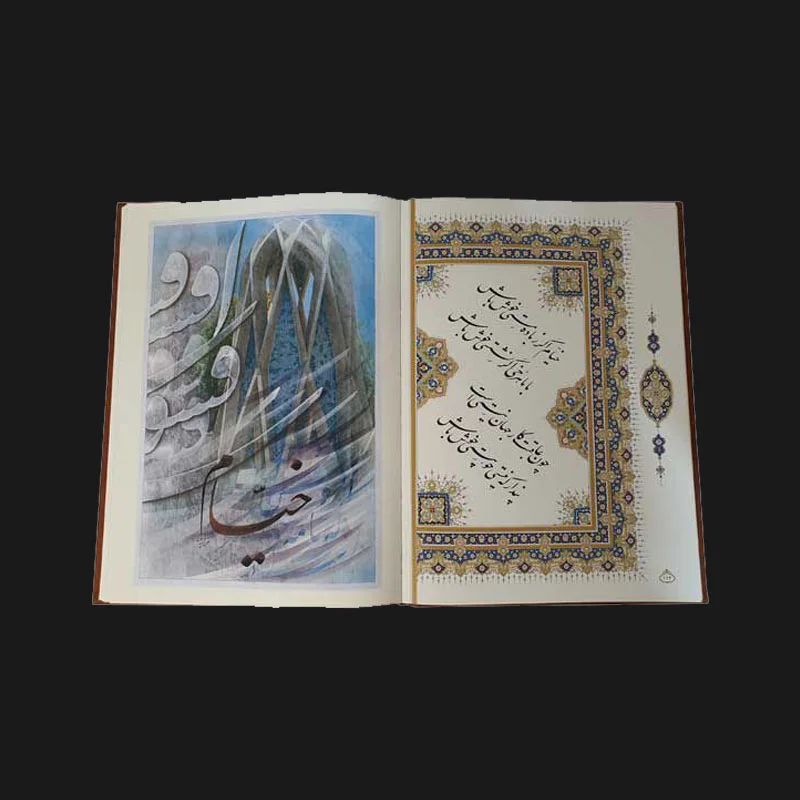 خیام اگر ز باده مستی خوش باش
با ماهرخی اگر نشستی خوش باش
چون عاقبت کار جهان نیستی است
پندار که نیستی چو هستی خوش باش
خیام